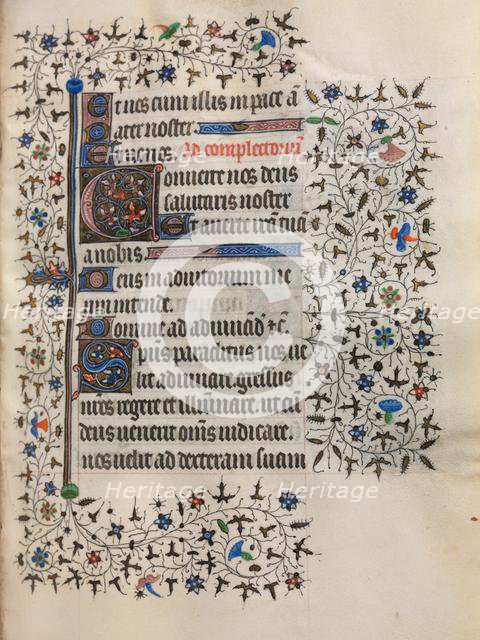 Et nos cum illis in pace a
Pater noster.
Ad complectoriu
Converte nos deus
salutaris noster
Et averte iram tuam
a nobis.
Deus in adiutorium me
um intende.
Domine ad adiuvand &c.
Spus paraclitus nos ve
lit adiuvare. gressus
nros regere et illuminare. ut cu
deus venerit omis iudicare.
nos velit ad dexteram suam
Heritage Heritage Heritage
Heritage Heritage Heritage
Heritage Heritage